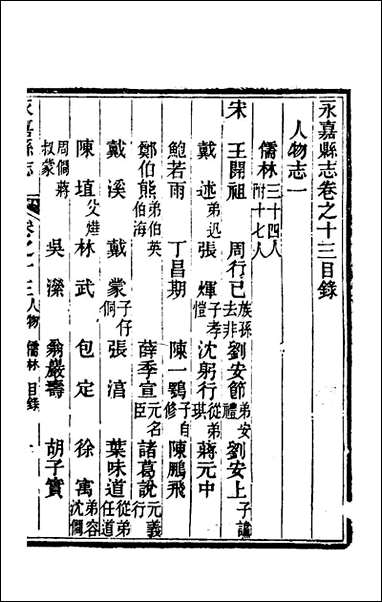 永嘉縣志卷之十三目錄
人物志一
儒林 三十四人 附十七人
宋 王開祖 周行己 族孫去非 劉安節 弟安禮 劉安上 子
戴述 弟迅 張煇 子孝愷 沈躬行 從弟琪 蔣元中
鮑若雨 丁昌期 陳一鶚 子自修 陳鵬飛
鄭伯熊 弟伯英 伯海 薛季宣 元名臣 諸葛說 元義行
戴溪 戴蒙 子仔 侗 張 葉味道 從弟任道
陳埴 父燁 林武 包定 徐寓 弟容 沈僩
周僩 蔣叔蒙 吳濼 翁巖壽 胡子實
永嘉縣志 卷之十三 人物 儒林 目錄